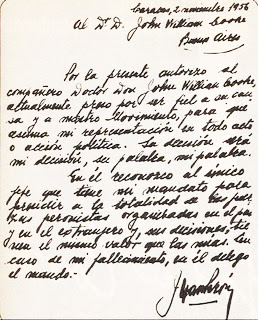 Caracas, 2 noviembre 1956
Al Dr. D. John William Cooke
Buenos Aires
Por la presente autorizo al
compañero Doctor Don John William Cooke,
actualmente preso por ser fiel a su cau
sa y a nuestro Movimiento, para que
asuma mi representación en todo acto
o acción política. La decisión será
mi decisión, su palabra, mi palabra.
En él reconozco al único
jefe que tiene mi mandato para
presidir a la totalidad de las fuer
zas peronistas organizadas en el país
y en el extranjero y sus decisiones, tie
nen el mismo valor que las mías. En
caso de mi fallecimiento, en él delego
el mando.-
Juan Perón